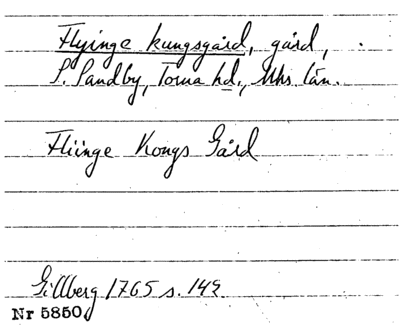 Flyinge kungsgård, gård,
S. Sandby, Torna hd., Mhs. län.
Fliinge Kongs Gård
Gillberg 1765 s. 149.
Nr 5850